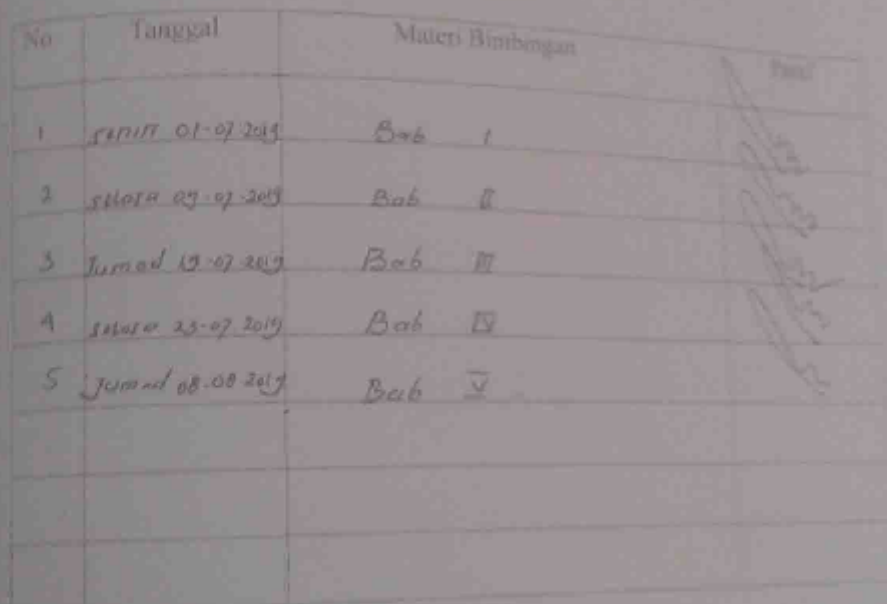 No Tanggal Materi Bimbingan Paraf
1 senin 01-07 2019 Bab I
2 selasa 09-07-2019 Bab II
3 Jumad 19-07 2019 Bab III
4 selasa 23-07 2019 Bab IV
5 Jumad 08-08 2019 Bab V